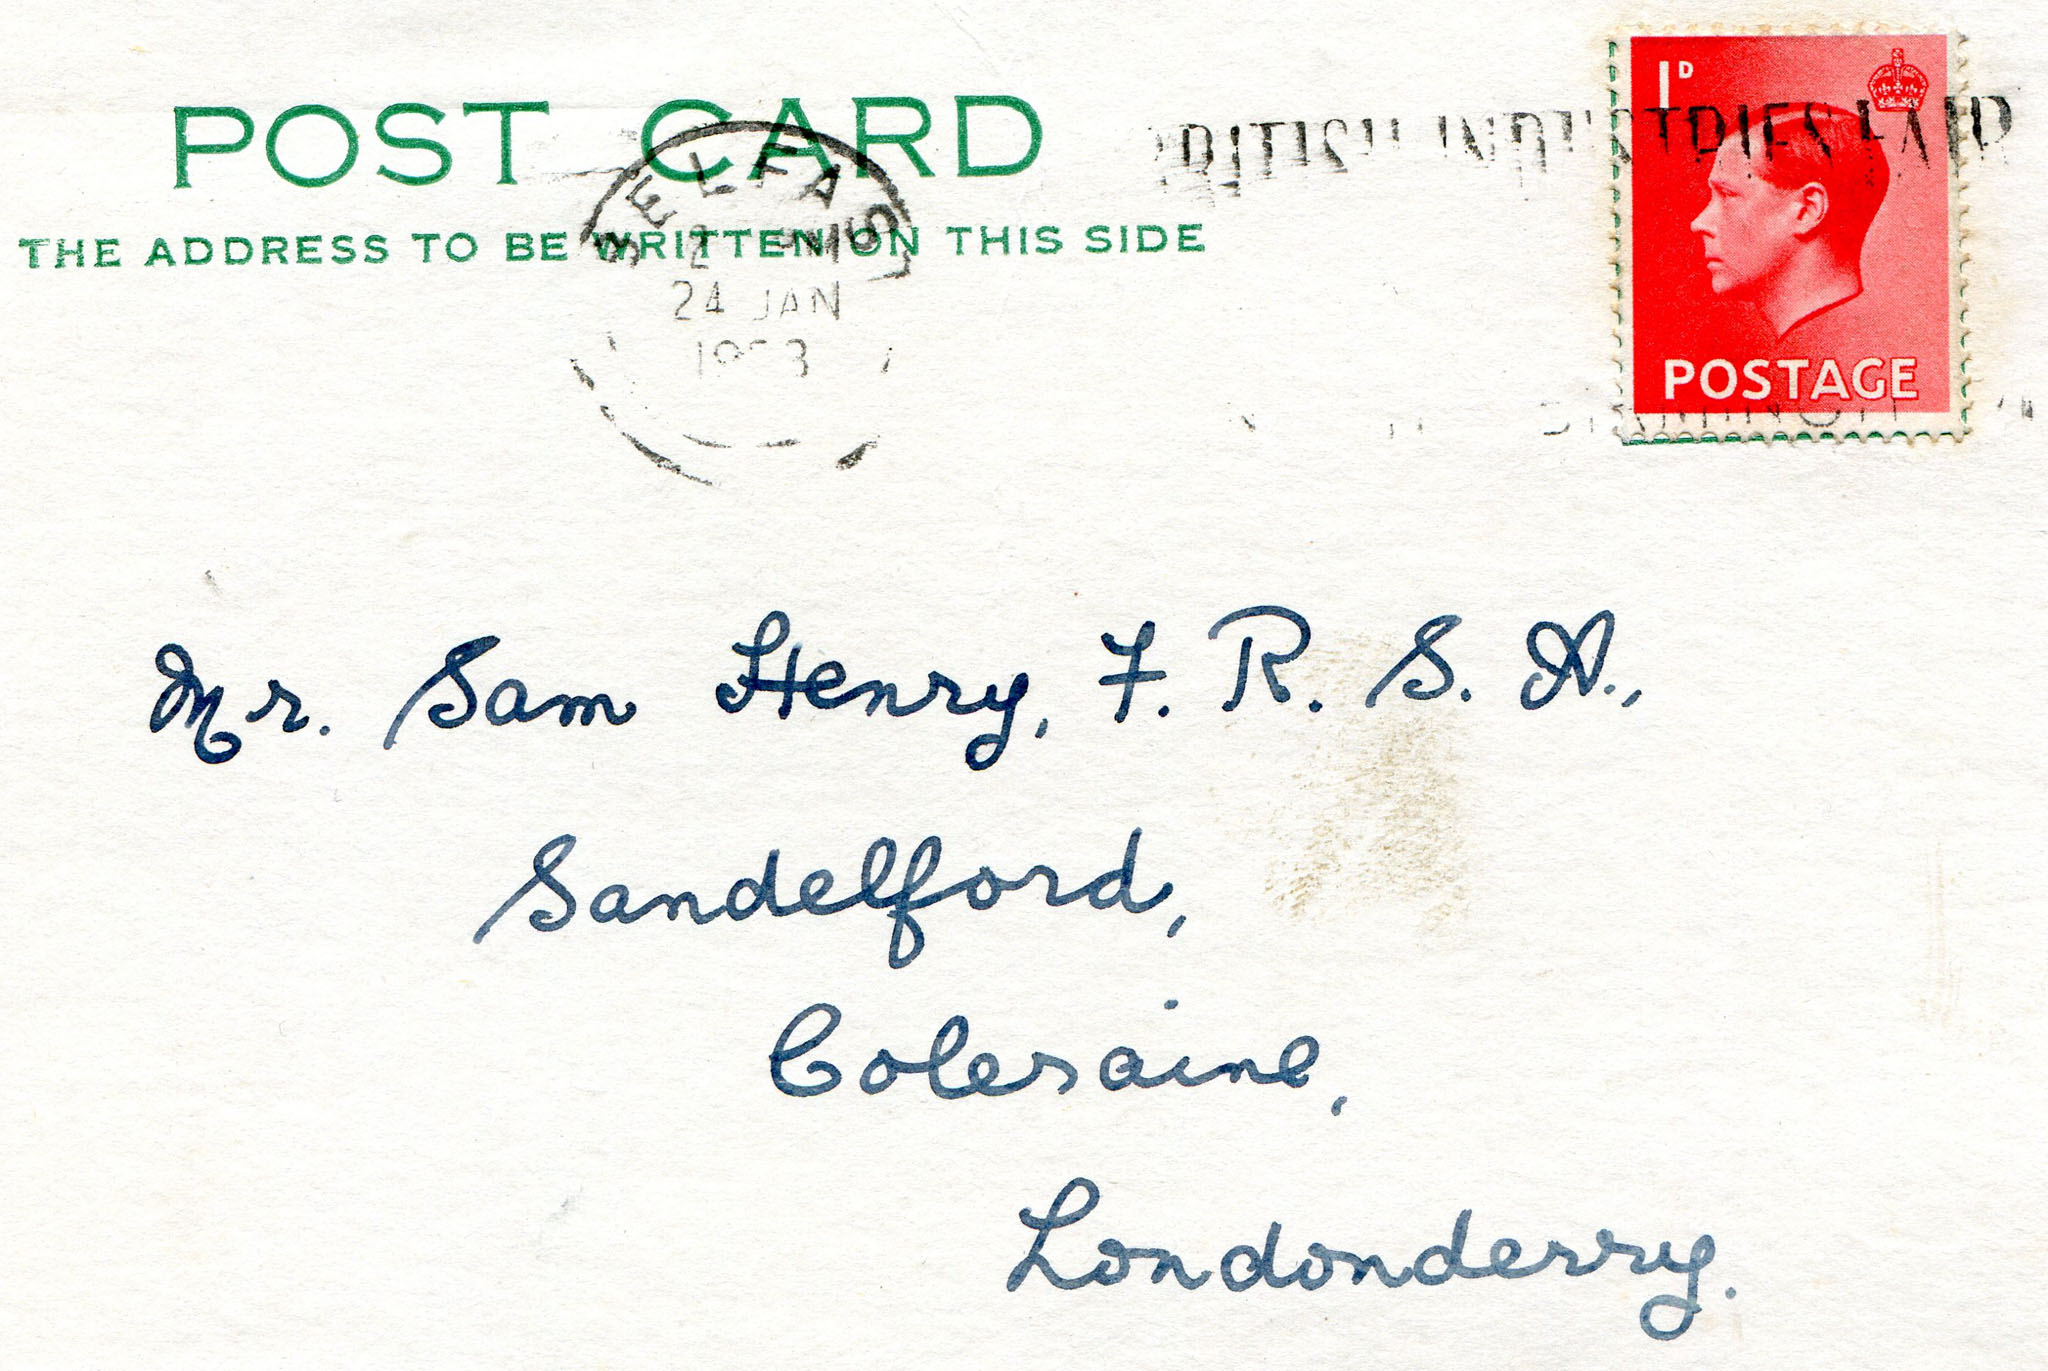 POST CARD
THE ADDRESS TO BE WRITTEN ON THIS SIDE
BELFAST
24 JAN
BRITISH INDUSTRIES FAIR
1D
POSTAGE
Mr. Sam Henry, F. R. S. A.,
Sandelford,
Coleraine,
Londonderry.